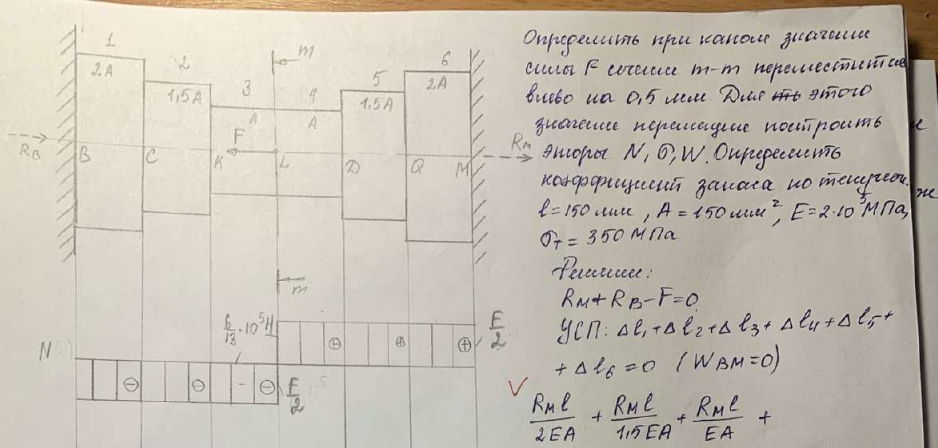 1
2
3
4
5
6
2A
1,5A
A
A
1,5A
2A
m
F
R_B
B
C
K
L
D
Q
M
R_M
m
6/13 · 10⁵ Н
F/2
N
F/2
⊖ ⊖ - ⊖
⊕ ⊕ ⊕
Определить при каком значении
силы F сечение m-m переместится
влево на 0,5 мм Для этого
значение перемещие построить
эпюры N, σ, W. Определить
коэффициент запаса по текучести.
l=150 мм, A=150 мм², E=2·10⁵ МПа,
σ_т = 350 МПа
Решение:
R_M + R_B - F = 0
УСП: Δl₁+Δl₂+Δl₃+Δl₄+Δl₅+
+Δl₆=0 (W_BM=0)
R_M l/2EA + R_M l/1,5EA + R_M l/EA +